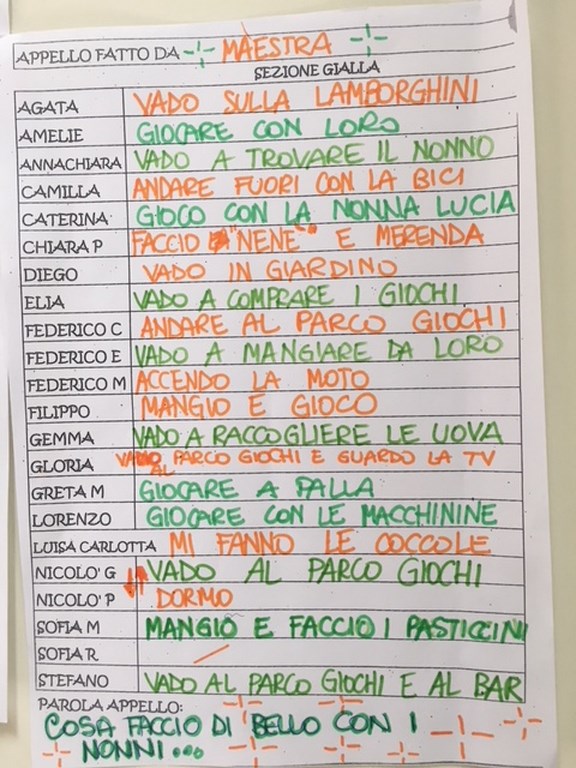 APPELLO FATTO DA MAESTRA
SEZIONE GIALLA
AGATA VADO SULLA LAMBORGHINI
AMELIE GIOCARE CON LORO
ANNACHIARA VADO A TROVARE IL NONNO
CAMILLA ANDARE FUORI CON LA BICI
CATERINA GIOCO CON LA NONNA LUCIA
CHIARA P FACCIO "NENE" E MERENDA
DIEGO VADO IN GIARDINO
ELIA VADO A COMPRARE I GIOCHI
FEDERICO C ANDARE AL PARCO GIOCHI
FEDERICO E VADO A MANGIARE DA LORO
FEDERICO M ACCENDO LA MOTO
FILIPPO MANGIO E GIOCO
GEMMA VADO A RACCOGLIERE LE UOVA
GLORIA VADO AL PARCO GIOCHI E GUARDO LA TV
GRETA M GIOCARE A PALLA
LORENZO GIOCARE CON LE MACCHININE
LUISA CARLOTTA MI FANNO LE COCCOLE
NICOLO' G VADO AL PARCO GIOCHI
NICOLO' P DORMO
SOFIA M MANGIO E FACCIO I PASTICCINI
SOFIA R
STEFANO VADO AL PARCO GIOCHI E AL BAR
PAROLA APPELLO:
COSA FACCIO DI BELLO CON I
NONNI...